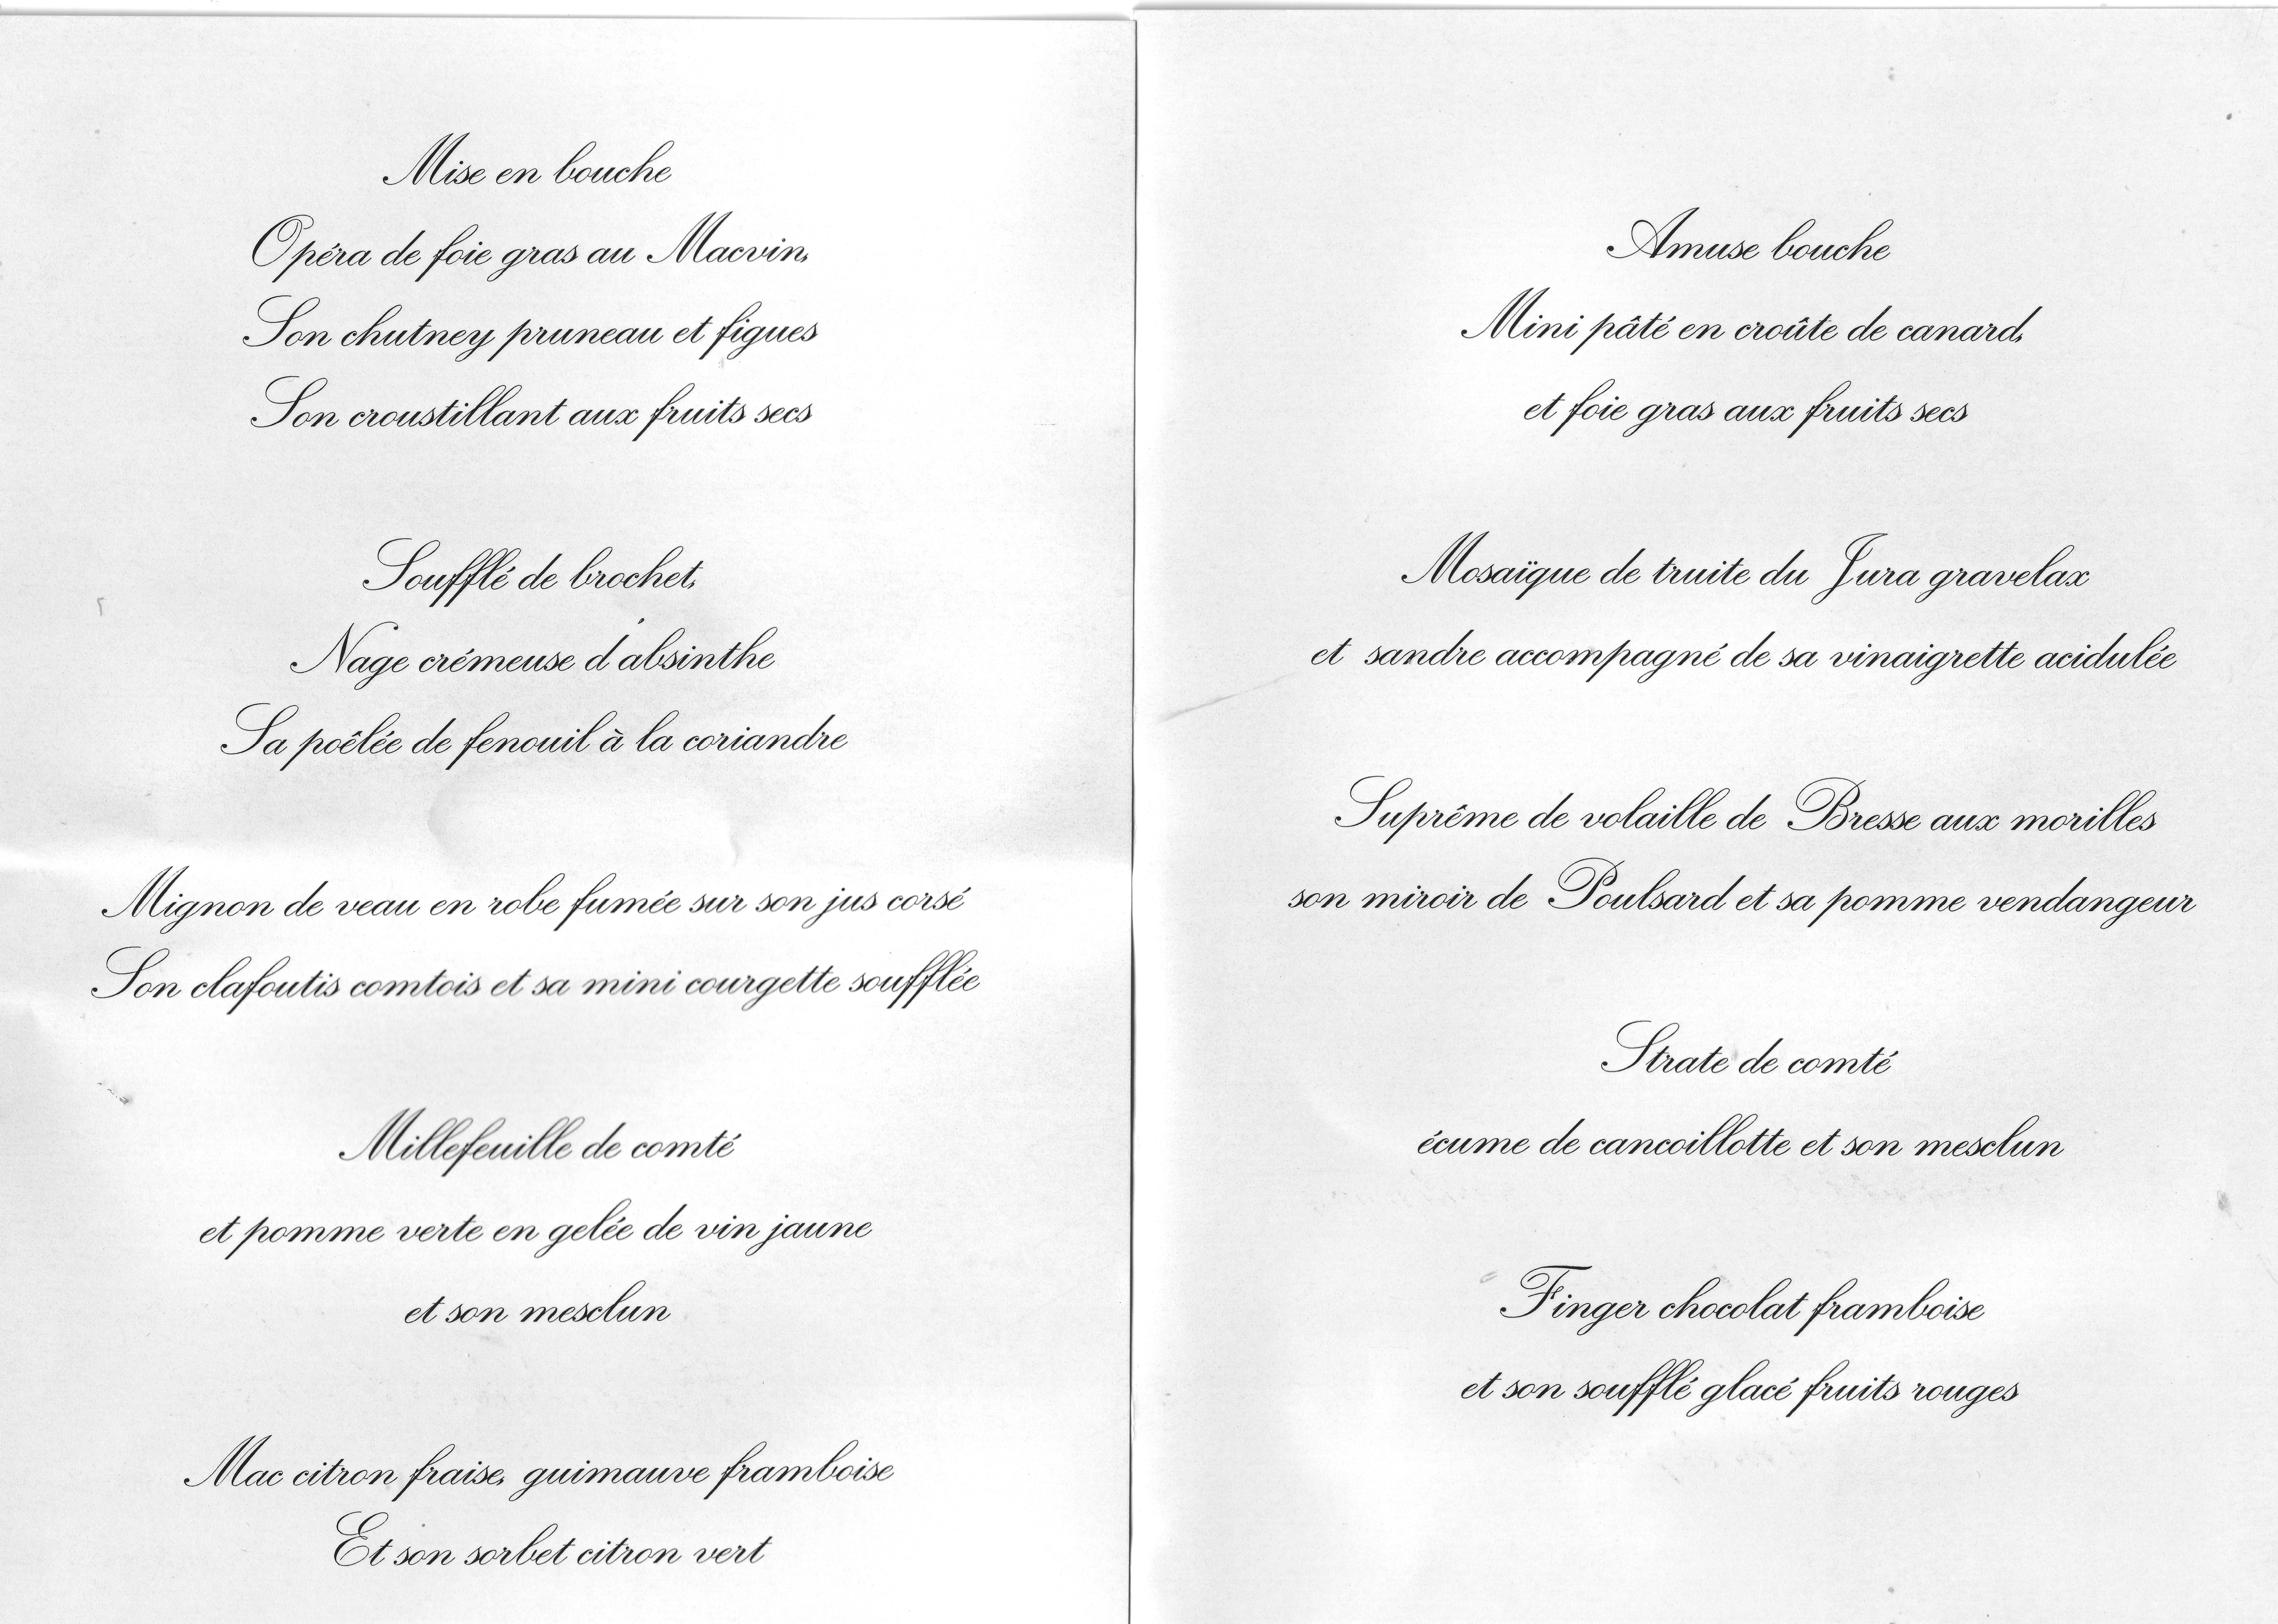 Mise en bouche
Opéra de foie gras au Macvin,
Son chutney pruneau et figues
Son croustillant aux fruits secs
Soufflé de brochet,
Nage crémeuse d'absinthe
Sa poêlée de fenouil à la coriandre
Mignon de veau en robe fumée sur son jus corsé
Son clafoutis comtois et sa mini courgette soufflée
Millefeuille de comté
et pomme verte en gelée de vin jaune
et son mesclun
Mac citron fraise, guimauve framboise
Et son sorbet citron vert
Amuse bouche
Mini pâté en croûte de canard,
et foie gras aux fruits secs
Mosaïque de truite du Jura gravelax
et sandre accompagné de sa vinaigrette acidulée
Suprême de volaille de Bresse aux morilles
son miroir de Poulsard et sa pomme vendangeur
Strate de comté
écume de cancoillotte et son mesclun
Finger chocolat framboise
et son soufflé glacé fruits rouges